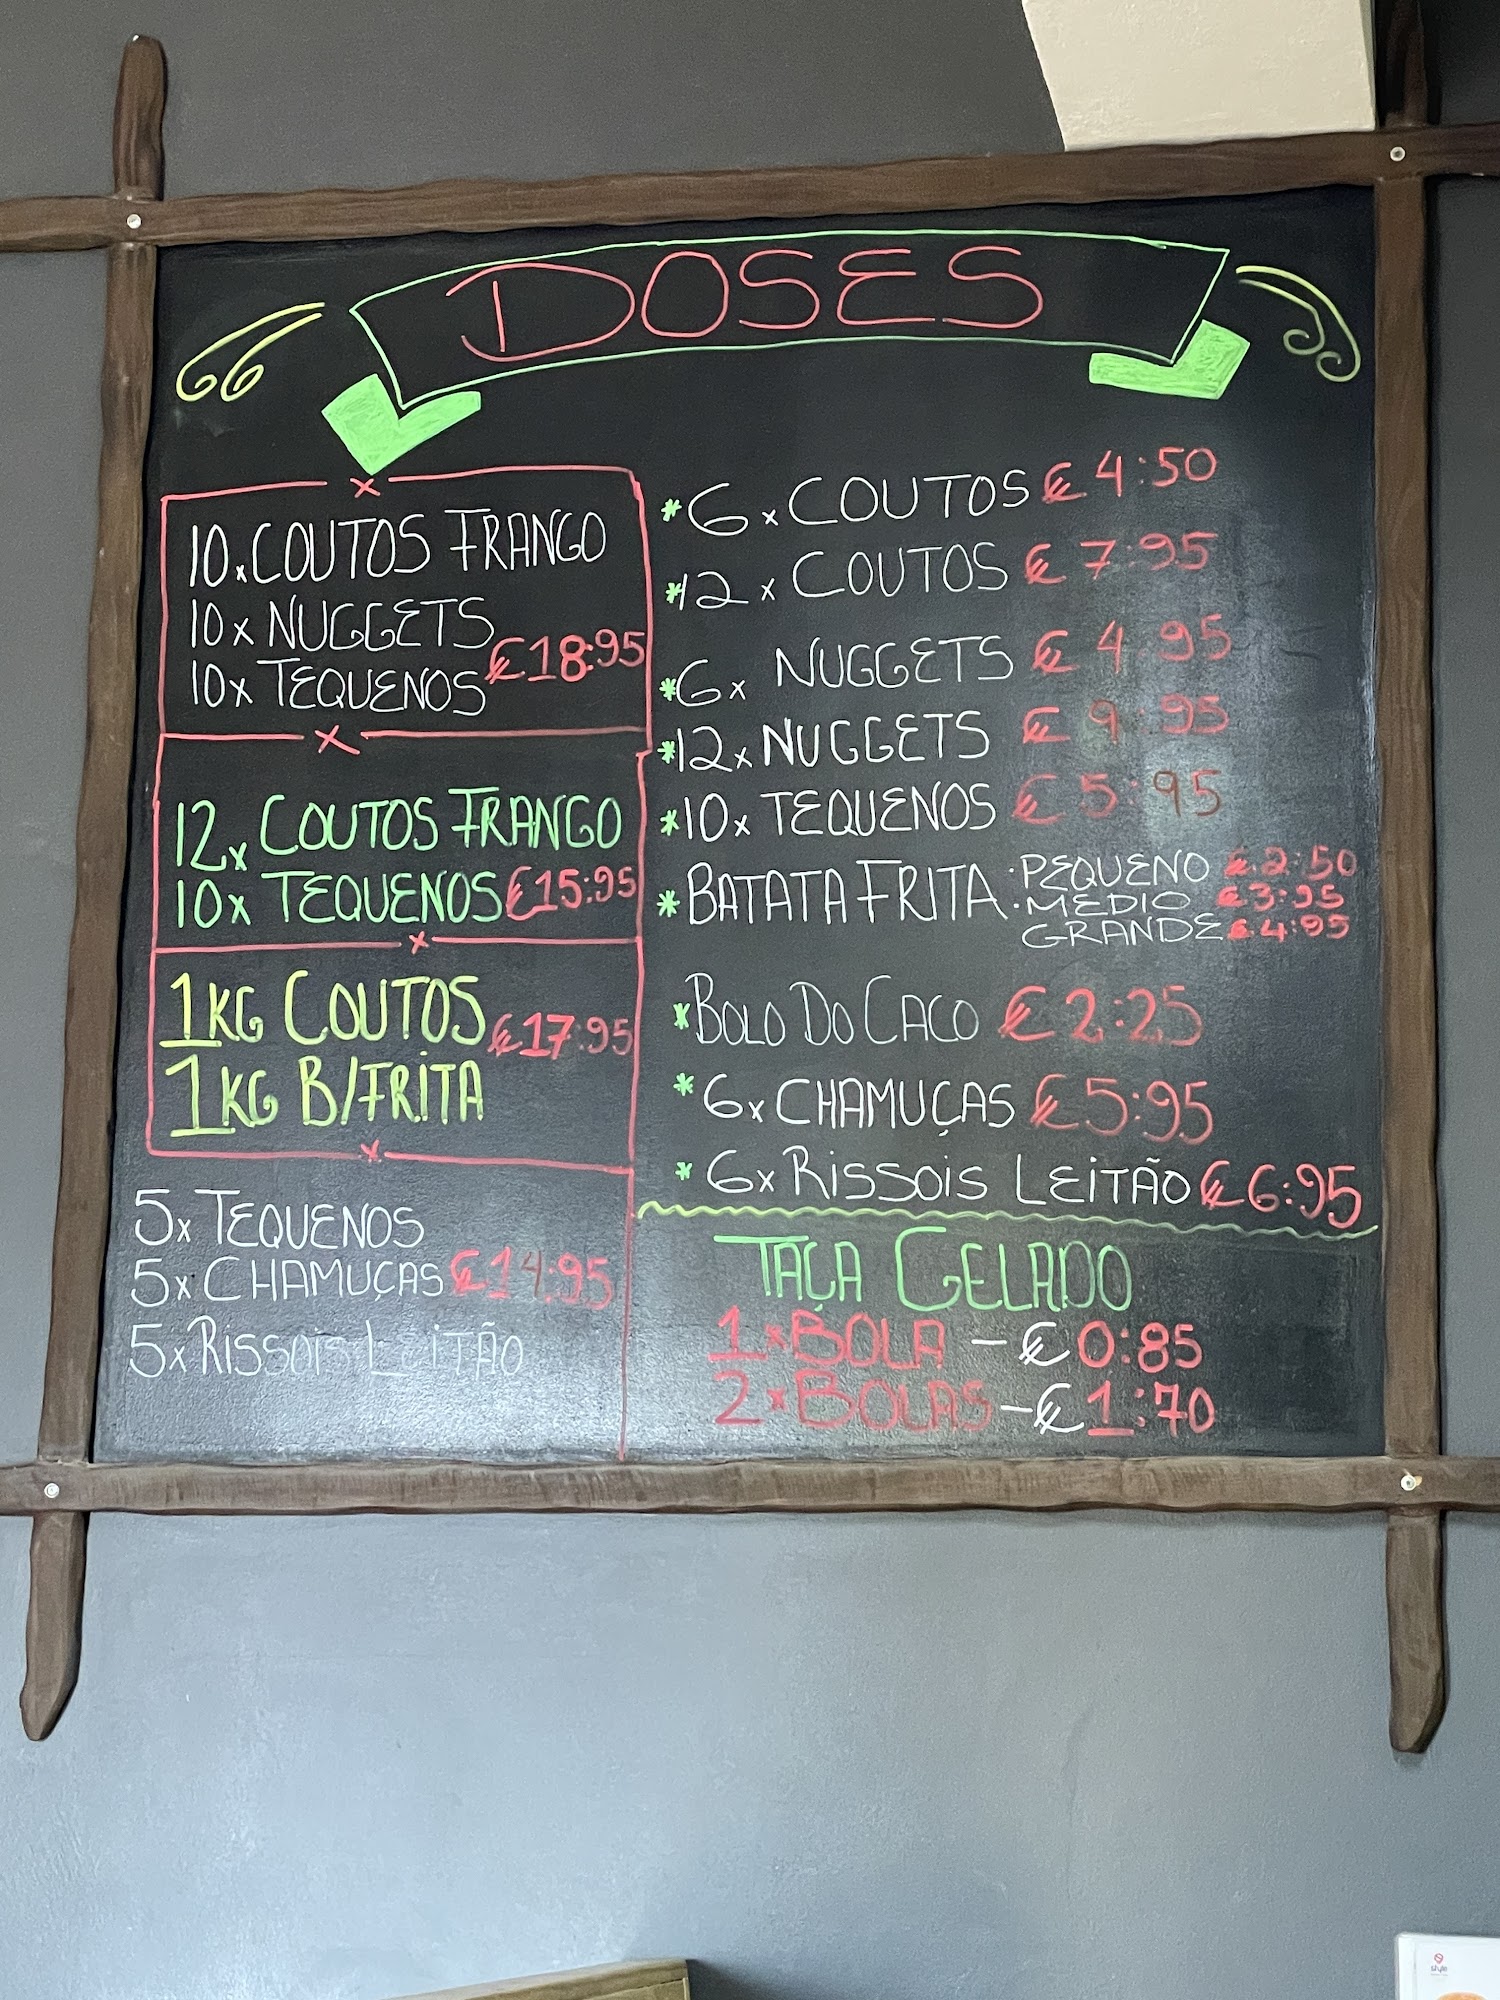 DOSES
10x COUTOS FRANGO
10x NUGGETS
10x TEQUENOS €18:95
12x COUTOS FRANGO
10x TEQUENOS €15:95
1KG COUTOS €17:95
1KG B/FRITA
5x TEQUENOS
5x CHAMUÇAS €14:95
5x RISSOIS LEITÃO
*6x COUTOS € 4:50
*12x COUTOS € 7:95
*6x NUGGETS € 4:95
*12x NUGGETS € 9:95
*10x TEQUENOS € 5:95
*BATATA FRITA · PEQUENO €2:50
· MEDIO €3:95
GRANDE €4:95
*BOLO DO CACO € 2:25
*6x CHAMUÇAS €5:95
*6x RISSOIS LEITÃO €6:95
TAÇA GELADO
1xBOLA - € 0:85
2xBOLAS - € 1:70
style